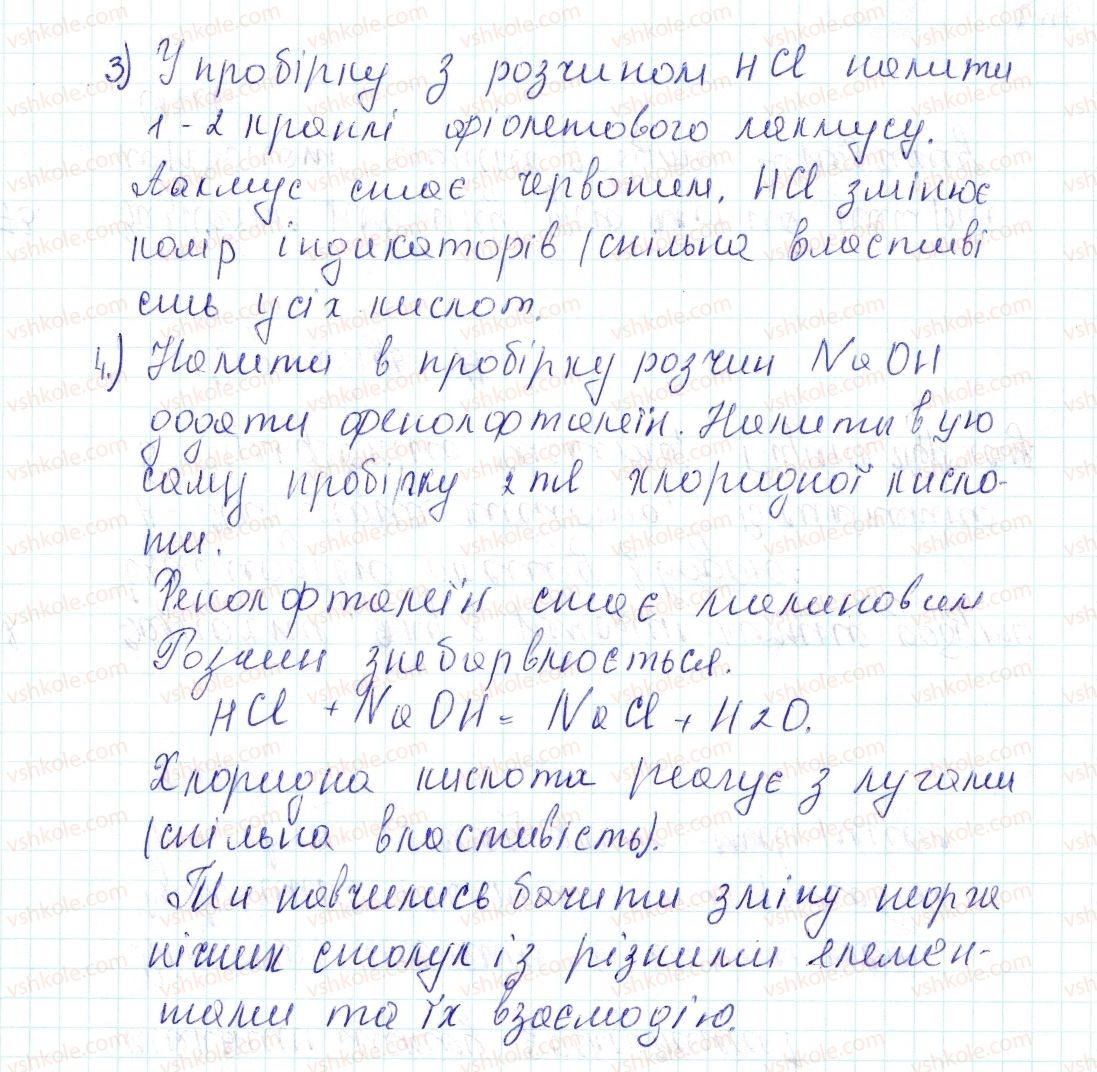 3) У пробірку з розчином HCl налити
1-2 краплі фіолетового лакмусу.
Лакмус стає червоним. HCl змінює
колір індикаторів (спільна властиві
сть усіх кислот.
4.) Налити в пробірку розчин NaOH
додати фенолфталеїн. Налити в ую
саму пробірку 2 мл хлоридної кисло-
ти.
Фенолфталеїн стає малиновим
Розчин знебарвлюється.
HCl + NaOH = NaCl + H2O.
Хлоридна кислота реагує з лугами
(спільна властивість).
Ми навчились бачити зміну неорга
нічних сполук із різними елемен-
тами та їх взаємодію.